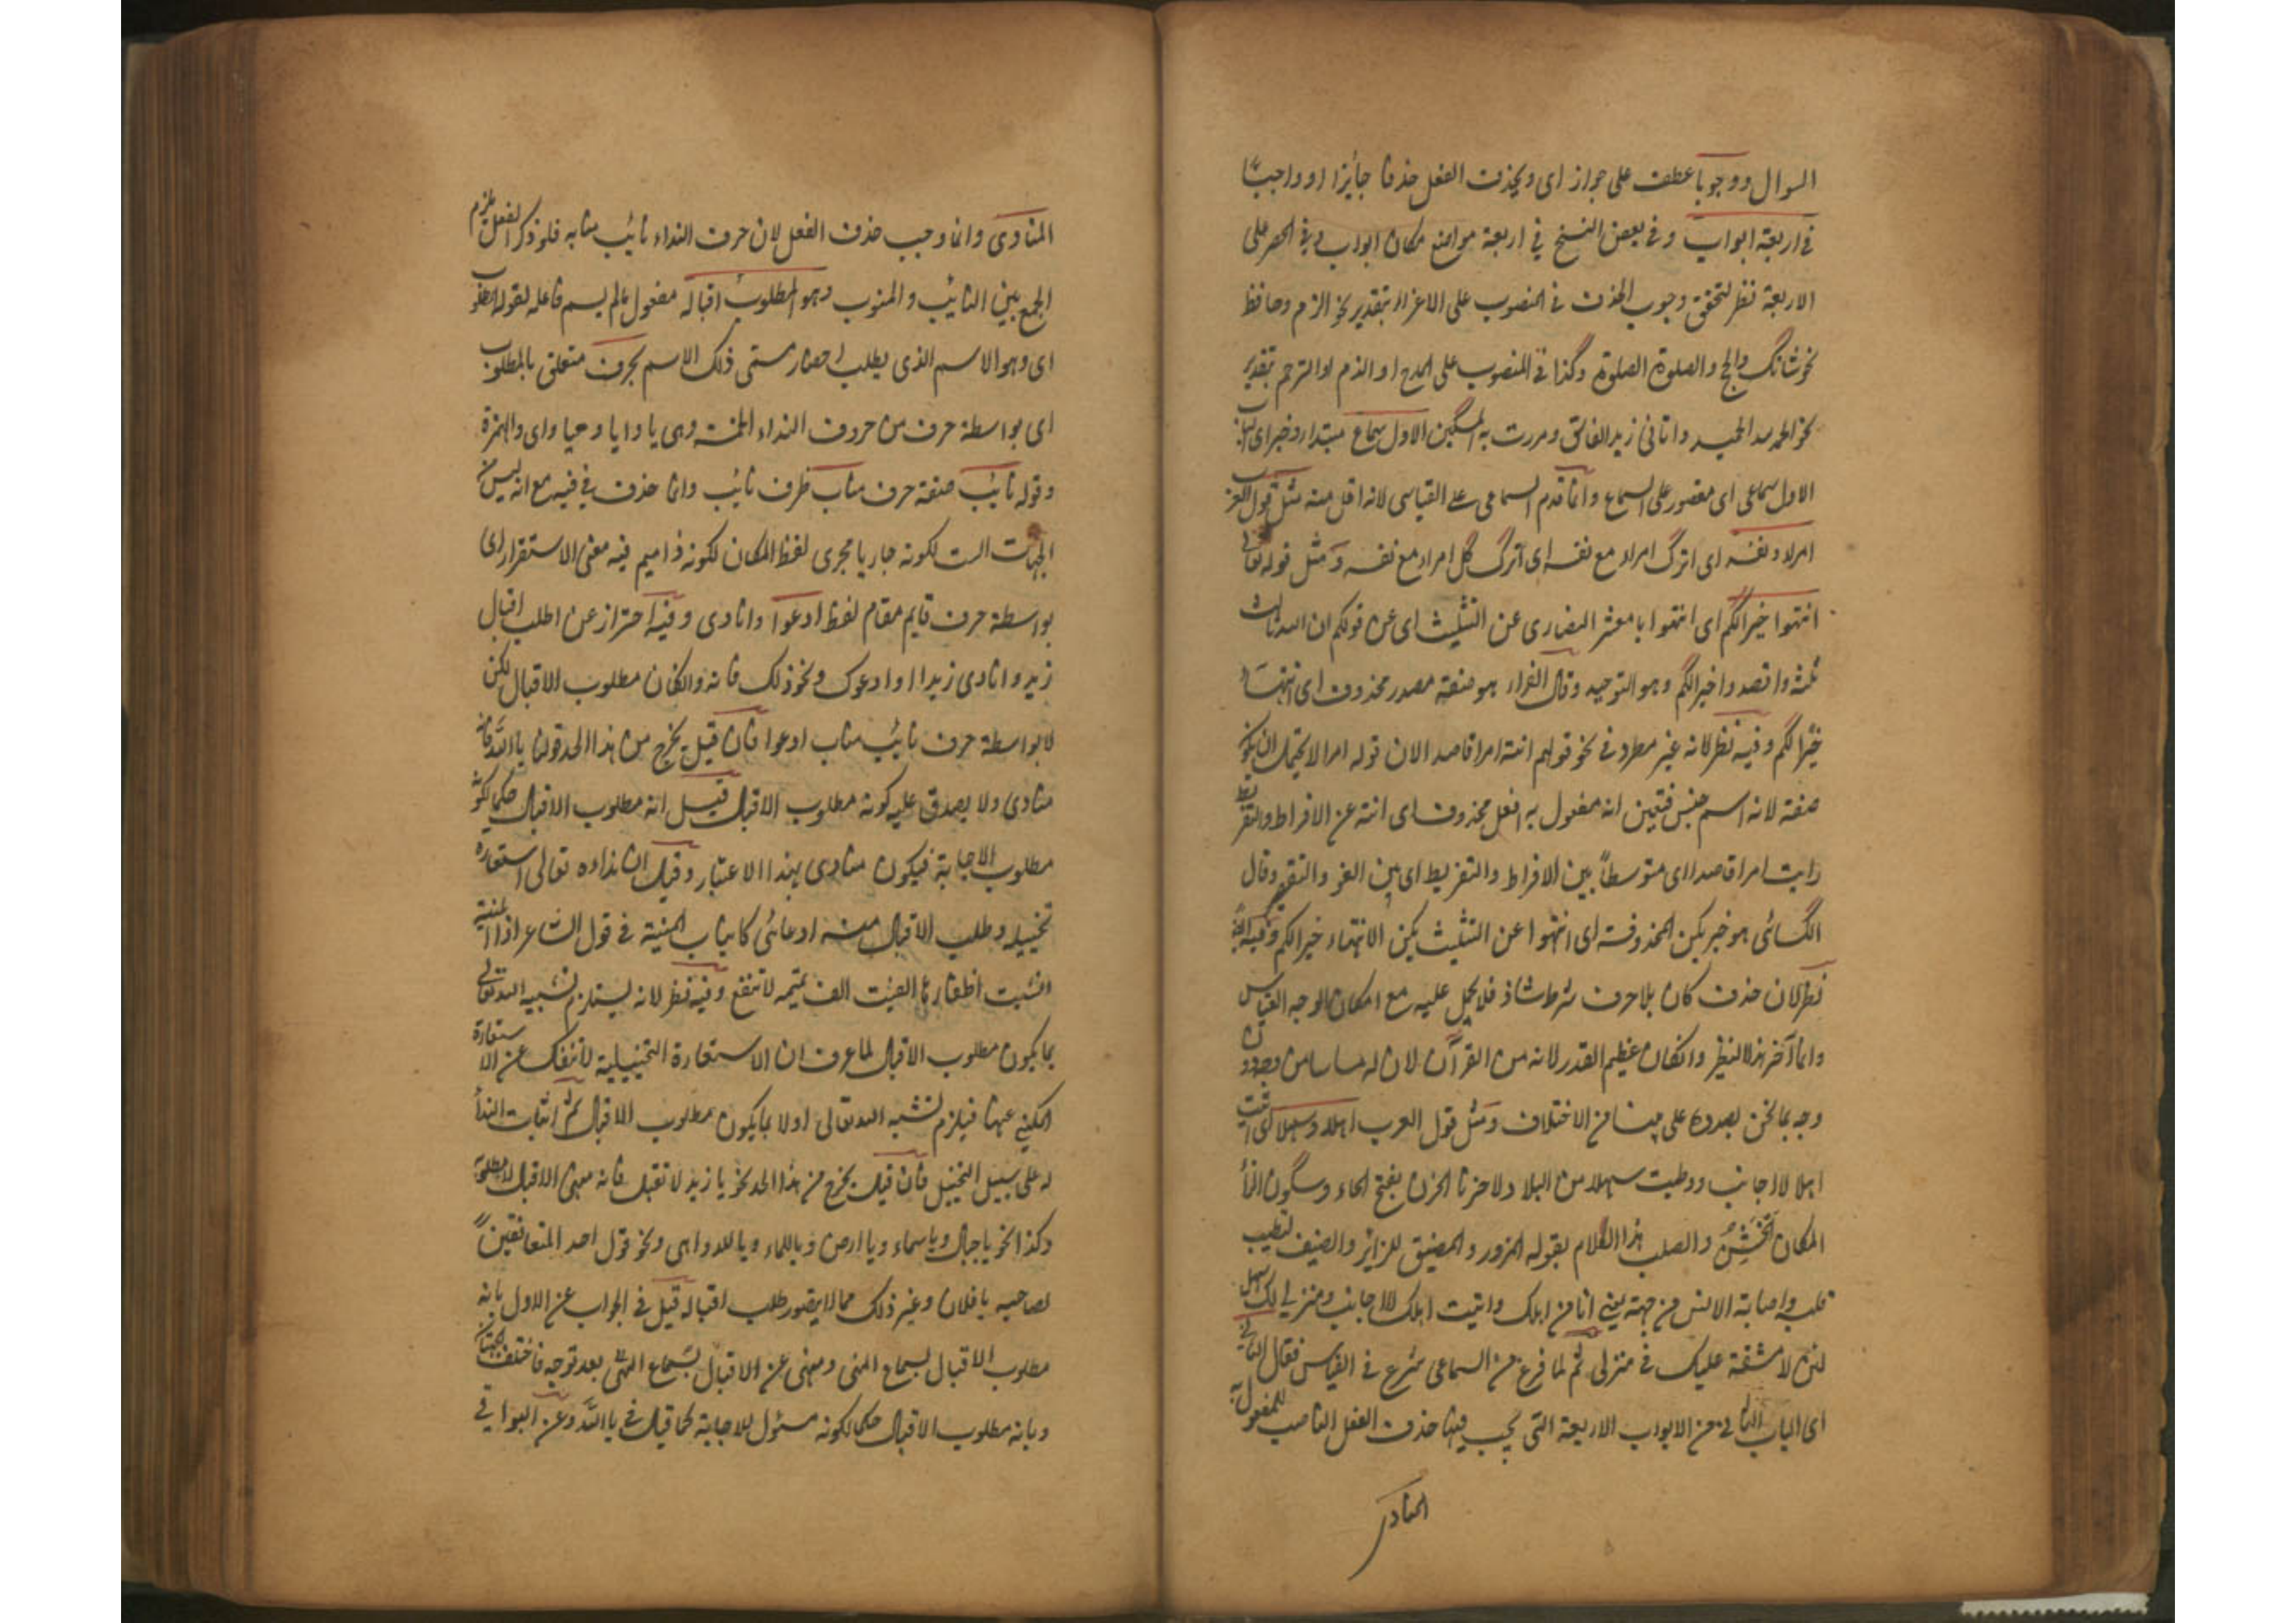 السوال ووجوبا عطف على جواز اى ويحذف الفعل حذفا جائزا او واجبا
فى اربعة ابواب وفى بعض النسخ فى اربعة مواضع مكان ابواب وفى الحصر على
الاربعة نظر لتحقق وجوب الحذف فى المنصوب على الاغراء بتقدير نحو الزم وحافظ
نحو شانك والحج والصلوة الصلوة وكذا فى المنصوب على المدح او الذم او الترحم بتقدير
نحو الحمد لله الحميد واتانى زيد الفاسق ومررت به المسكين الاول سماع مبتدا وخبر اى
الاول سماعى اى مقصور على السماع وانما قدم السماعى على القياسى لانه اقل منه مثل قول العرب
امرءا ونفسه اى اترك امرءا مع نفسه اى اترك كل امرء مع نفسه ومثل قوله تعالى
انتهوا خيرا لكم اى انتهوا يا معشر النصارى عن التثليث اى عن قولكم ان الله ثالث
ثلثة واقصدوا خيرا لكم وهو التوحيد وقال الفراء هو صفة مصدر محذوف اى انتهاء
خيرا لكم وفيه نظر لانه غير مطرد فى نحو قولهم انته امرا قاصدا لان قوله امرا لا يحتمل ان يكون
صفة لانه اسم جنس فتعين انه مفعول به لفعل محذوف اى انته عن الافراط والتفريط
رايت امرا قاصدا اى متوسطا بين الافراط والتفريط اى بين الغو والتقصير وقال
الكسائى هو خبر يكن المحذوفة اى انتهوا عن التثليث يكن الانتهاء خيرا لكم وفيه ايضا
نظر لان حذف كان بلا حرف شرط شاذ فلا يحمل عليه مع امكان الوجه القياسى
وانما آخر هذا النظير وان كان عظيم القدر لانه من القرآن لان له مساسا من وجه دون
وجه بما نحن بصدده على بينا من الاختلاف ومثل قول العرب اهلا وسهلا اى اتيت
اهلا لا اجانب ووطيت سهلا من البلاد لا حزنا الحزن بفتح الحاء وسكون الزاء
المكان الخشن والصلب هذا الكلام يقوله المزور والمضيف للزائر والضيف لتطييب
قلبه واصابة الانس من جهته يعنى انا من اهلك واتيت اهلك لا الاجانب ومنزلى لك سهل
لين لا مشقة عليك فى منزلى ثم لما فرغ من السماعى شرع فى القياس فقال الثانى
اى الباب الثانى من الابواب الاربعة التى يجب فيها حذف الفعل الناصب للمفعول به
المنادى
المنادى وانما وجب حذف الفعل لان حرف النداء نائب منابه فلو ذكر الفعل يلزم
الجمع بين النائب والمنوب وهو المطلوب اقباله مفعول ما لم يسم فاعله لقوله المطلوب
اى وهو الاسم الذى يطلب احضار مسمى ذلك الاسم بحرف متعلق بالمطلوب
اى بواسطة حرف من حروف النداء الخمسة وهى يا وايا وهيا واى والهمزة
وقوله نائب صفة حرف مناب ظرف نائب وانما حذف فى فيه مع انه ليس من
الجهات الست لكونه جاريا مجرى لفظ المكان لكونه ذا ميم فيه معنى الاستقرار اى
بواسطة حرف قايم مقام لفظ ادعوا وانادى وفيه احتراز عن اطلب اقبال
زيد وانادى زيدا او ادعوك ونحو ذلك فانه وان كان مطلوب الاقبال لكن
لا بواسطة حرف نائب مناب ادعوا فان قيل يخرج من هذا الحد قولنا يا الله فانه
منادى ولا يصدق عليه كونه مطلوب الاقبال قيل انه مطلوب الاقبال حكما لكونه
مطلوب الاجابة فيكون منادى بهذا الاعتبار وقيل ان نداءه تعالى استعارة
تخييلية وطلب الاقبال منه ادعائى كانياب المنية فى قول الشاعر اذا المنية
انشبت اظفارها الفيت الف تميمه لا تنفع وفيه نظر لانه يستلزم تشبيه الله تعالى
بما يكون مطلوب الاقبال لما عرف ان الاستعارة التخييلية لا تنفك عن الاستعارة
المكنى عنها فيلزم تشبيه الله تعالى اولا بما يكون مطلوب الاقبال ثم اثبات النداء
له على سبيل التخييل فان قيل يخرج من هذا الحد نحو يا زيد لا تقبل فانه منهى الاقبال لا مطلوبه
وكذا نحو يا جبال ويا سماء ويا ارض ويا للماء ويا للدواهى ونحو قول احد المتعانقين
لصاحبه يا فلان وغير ذلك مما لا يتصور طلب اقباله قيل فى الجواب عن الاول بانه
مطلوب الاقبال لسماع النهى ومنهى عن الاقبال بسماع النهى بعد توجه فاختلف الجهتان
وبانه مطلوب الاقبال حكما لكونه مسئول للاجابة كما قيل فى يا الله وعن البواقى